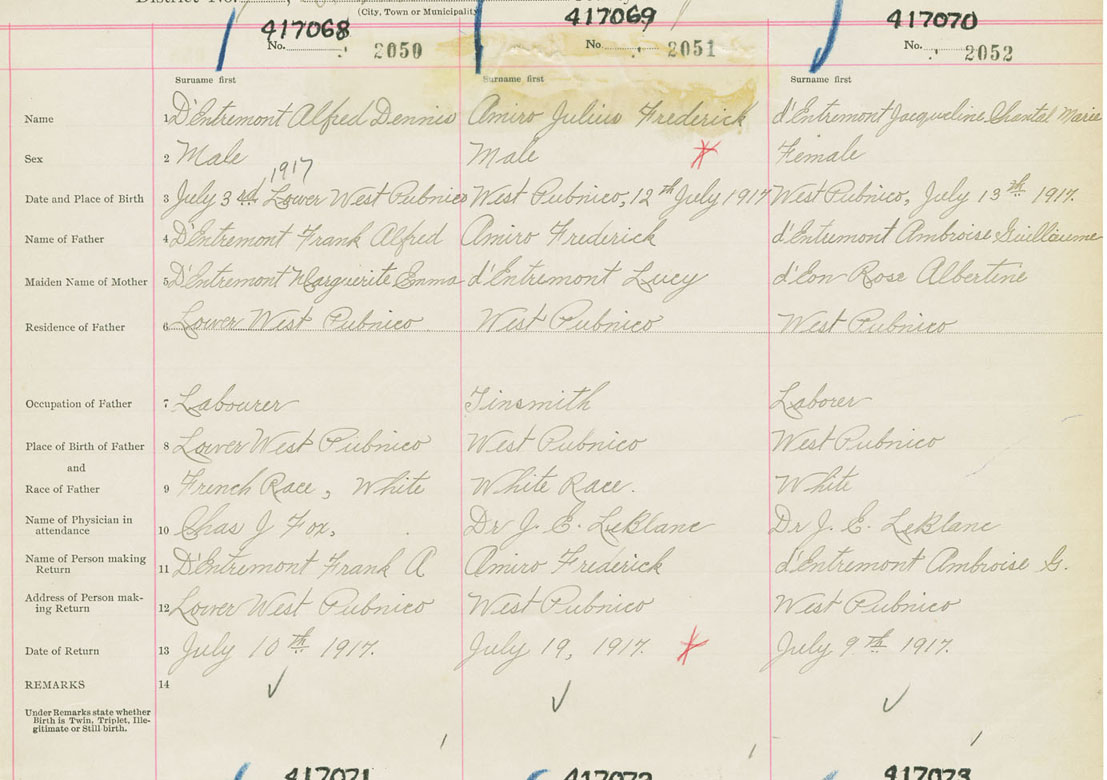 District No.
(City, Town or Municipality)
417068 417069 417070
No. 2050 No. 2051 No. 2052
Surname first Surname first Surname first
Name 1 D'Entremont Alfred Dennis Amiro Julius Frederick d'Entremont Jacqueline Chantal Marie
Sex 2 Male Male Female
1917
Date and Place of Birth 3 July 3rd Lower West Pubnico West Pubnico, 12th July 1917 West Pubnico, July 13th 1917.
Name of Father 4 D'Entremont Frank Alfred Amiro Frederick d'Entremont Ambroise Guillaume
Maiden Name of Mother 5 D'Entremont Marguerite Emma d'Entremont Lucy d'Eon Rose Albertine
Residence of Father 6 Lower West Pubnico West Pubnico West Pubnico
Occupation of Father 7 Labourer Tinsmith Laborer
Place of Birth of Father 8 Lower West Pubnico West Pubnico West Pubnico
and
Race of Father 9 French Race, White White Race. White
Name of Physician in
attendance 10 Chas J Fox. Dr J. E. LeBlanc Dr J. E. LeBlanc
Name of Person making
Return 11 D'Entremont Frank A Amiro Frederick d'Entremont Ambroise G.
Address of Person mak-
ing Return 12 Lower West Pubnico West Pubnico West Pubnico
Date of Return 13 July 10th 1917. July 19, 1917. July 9th 1917.
REMARKS 14
Under Remarks state whether
Birth is Twin, Triplet, Ille-
gitimate or Still-birth.
417071 417072 417073